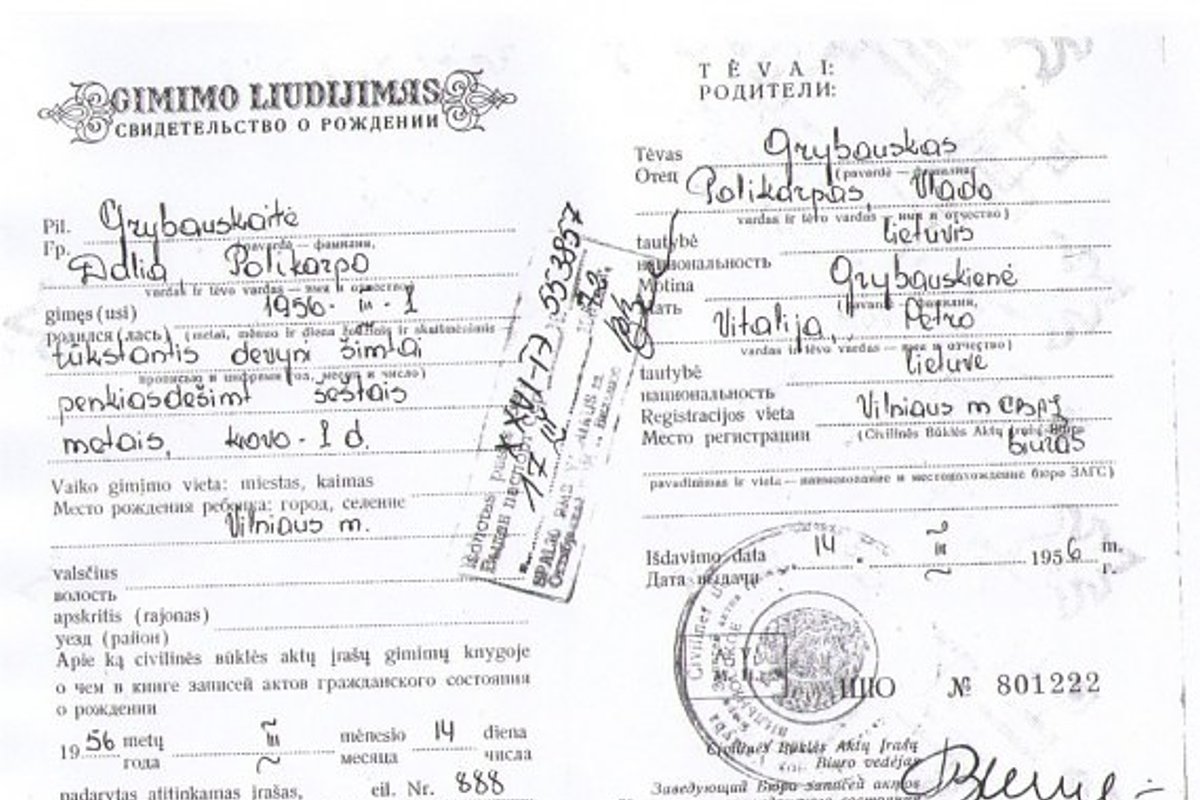 GIMIMO LIUDIJIMAS
СВИДЕТЕЛЬСТВО О РОЖДЕНИИ
Pil. Grybauskaitė
Гр. (pavardė — фамилия,
Dalia Polikarpo
vardas ir tėvo vardas — имя и отчество)
gimęs (usi) 1956 - III - 1
родился (лась) (metai, mėnuo ir diena žodžiais ir skaitmenimis
tūkstantis devyni šimtai
прописью и цифрами год, месяц и число)
penkiasdešimt šeštais
metais, kovo - 1 d.
Vaiko gimimo vieta: miestas, kaimas
Место рождения ребенка: город, селение
Vilniaus m.
valsčius
волость
apskritis (rajonas)
уезд (район)
Apie ką civilinės būklės aktų įrašų gimimų knygoje
о чем в книге записей актов гражданского состояния
о рождении
1956 metų III mėnesio 14 diena
года месяца числа
padarytas atitinkamas įrašas, eil. Nr. 888
XXVI-77 553857
TĖVAI:
РОДИТЕЛИ:
Tėvas Grybauskas
Отец (pavardė — фамилия,
Polikarpas, Vlado
vardas ir tėvo vardas — имя и отчество)
tautybė lietuvis
национальность
Motina Grybauskienė
Мать (pavardė — фамилия,
Vitalija, Petro
vardas ir tėvo vardas — имя и отчество)
tautybė lietuvė
национальность
Registracijos vieta Vilniaus m
Место регистрации (Civilinės Būklės Aktų Įrašų Biuro
biuras
pavadinimas ir vieta — наименование и местонахождение бюро ЗАГС)
Išdavimo data 14 III 1956 m.
Дата выдачи г.
№ 801222
Civilinės Būklės Aktų Įrašų
Biuro vedėjas
Заведующий Бюро записей актов